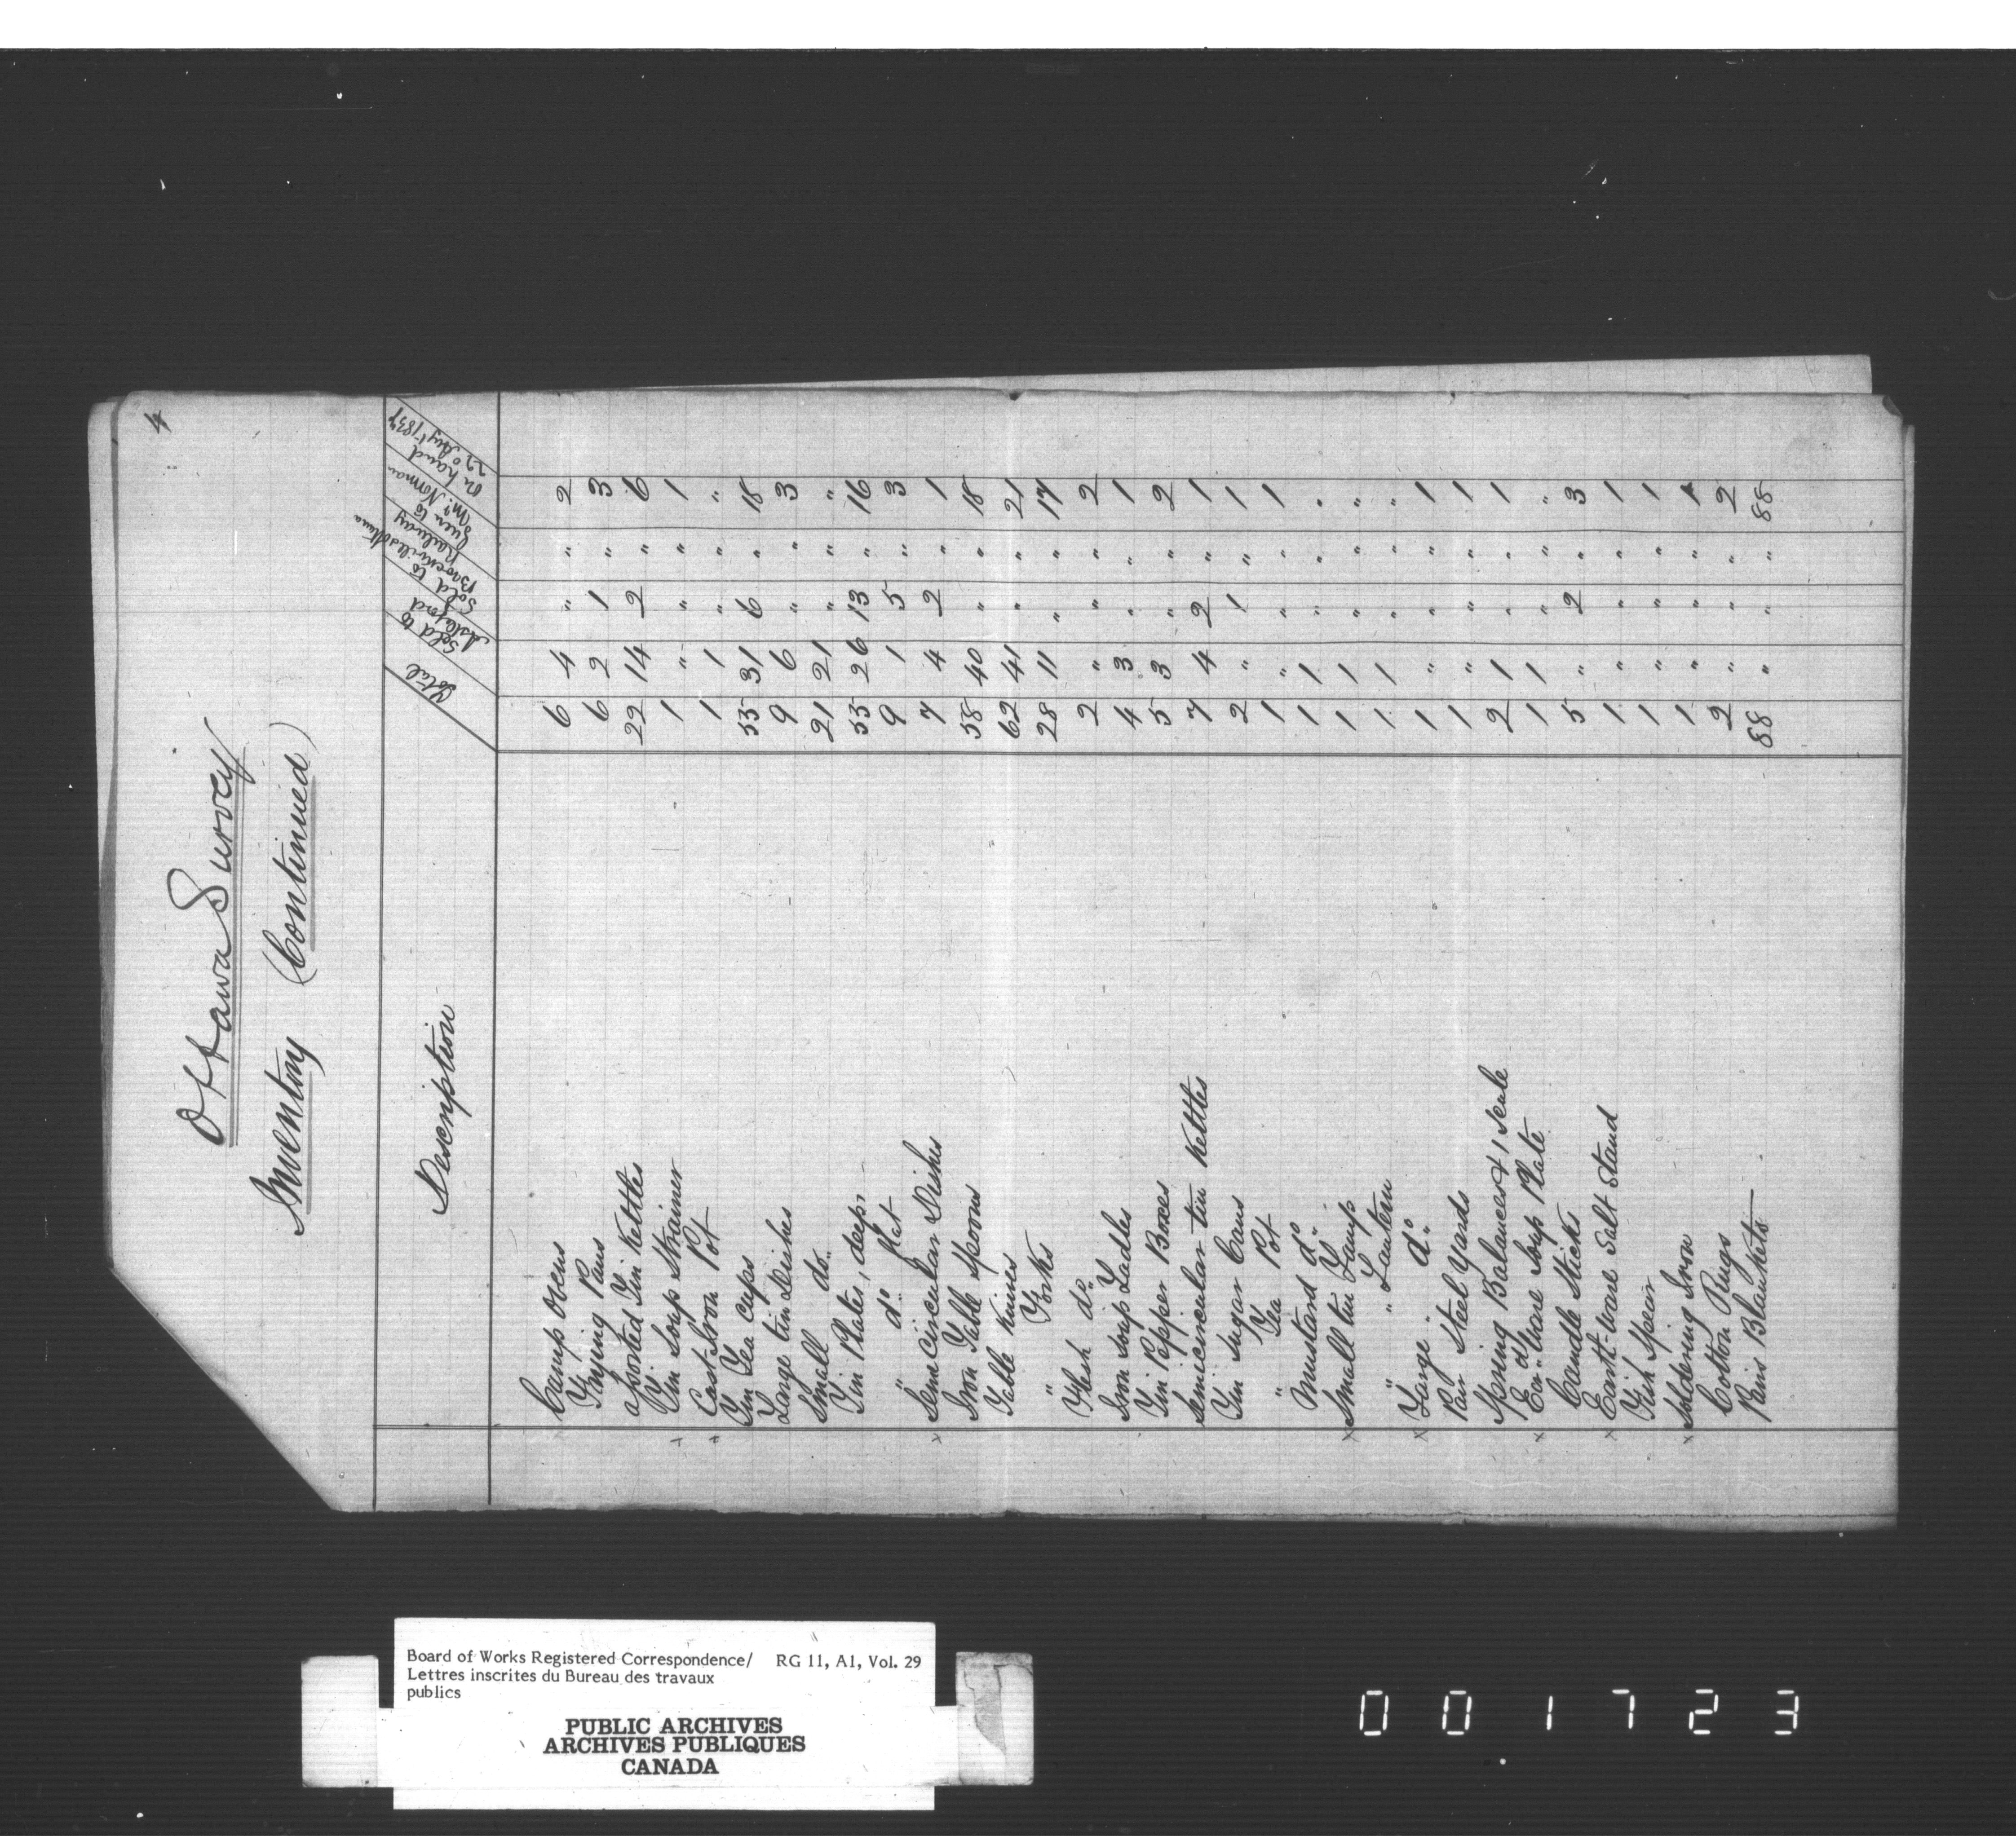 4
Ottawa Survey
Inventory (Continued)
Description Total Sold to Sold to Railway Given to Mr. Norman On hand
Camp Ovens 6 4 " " 2
Frying Pans 6 2 1 " 3
assorted Tin Kettles 22 14 2 " 6
Tin Soup Strainer 1 " " " 1
Cast-Iron Pot 1 1 " " "
Tin Tea Cups 55 31 6 " 18
Large tin Dishes 9 6 " " 3
Small do. 21 21 " " "
Tin Plates, deep 55 26 13 " 16
" do flat 9 1 5 " 3
x Semicircular Dishes 7 4 2 " 1
Iron Table Spoons 58 40 " " 18
Table knives 62 41 " " 21
" Forks 28 11 " " 17
Flesh do 2 " " " 2
Iron soup Ladles 4 3 " " 1
Tin Pepper Boxes 5 3 " " 2
Semicircular tin Kettles 7 4 2 " 1
Tin sugar Cans 2 " 1 " 1
" Tea Pot 1 " " " 1
" Mustard do 1 1 " " "
x Small tin Lamp 1 1 " " "
" " Lantern 1 1 " " "
x Large " do 1 " " " 1
Pair Steel Yards 1 " " " 1
Spring Balances & 1 Scale 2 1 " " 1
x Ea.d Ware Soup Plate 1 1 " " "
Candle Sticks 5 " 2 " 3
x Earth-ware Salt Stand 1 " " " 1
Fish Spear 1 " " " 1
x Soldering Iron 1 " " " 1
Cotton Rugs 2 " " " 2
Pairs Blankets 88 " " " 88
Board of Works Registered Correspondence/ RG 11, A1, Vol. 29
Lettres inscrites du Bureau des travaux
publics
PUBLIC ARCHIVES
ARCHIVES PUBLIQUES
CANADA
001723